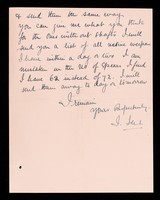 & send them the same way.
you can give me what you think
for the ones without shafts I will
send you a list of all native weapons
I have within a day or two I am
mistaken in the No of Spears I find
I have 64 instead of 72. I will
send them away to day or tomorrow
I remain
yours Respectfully